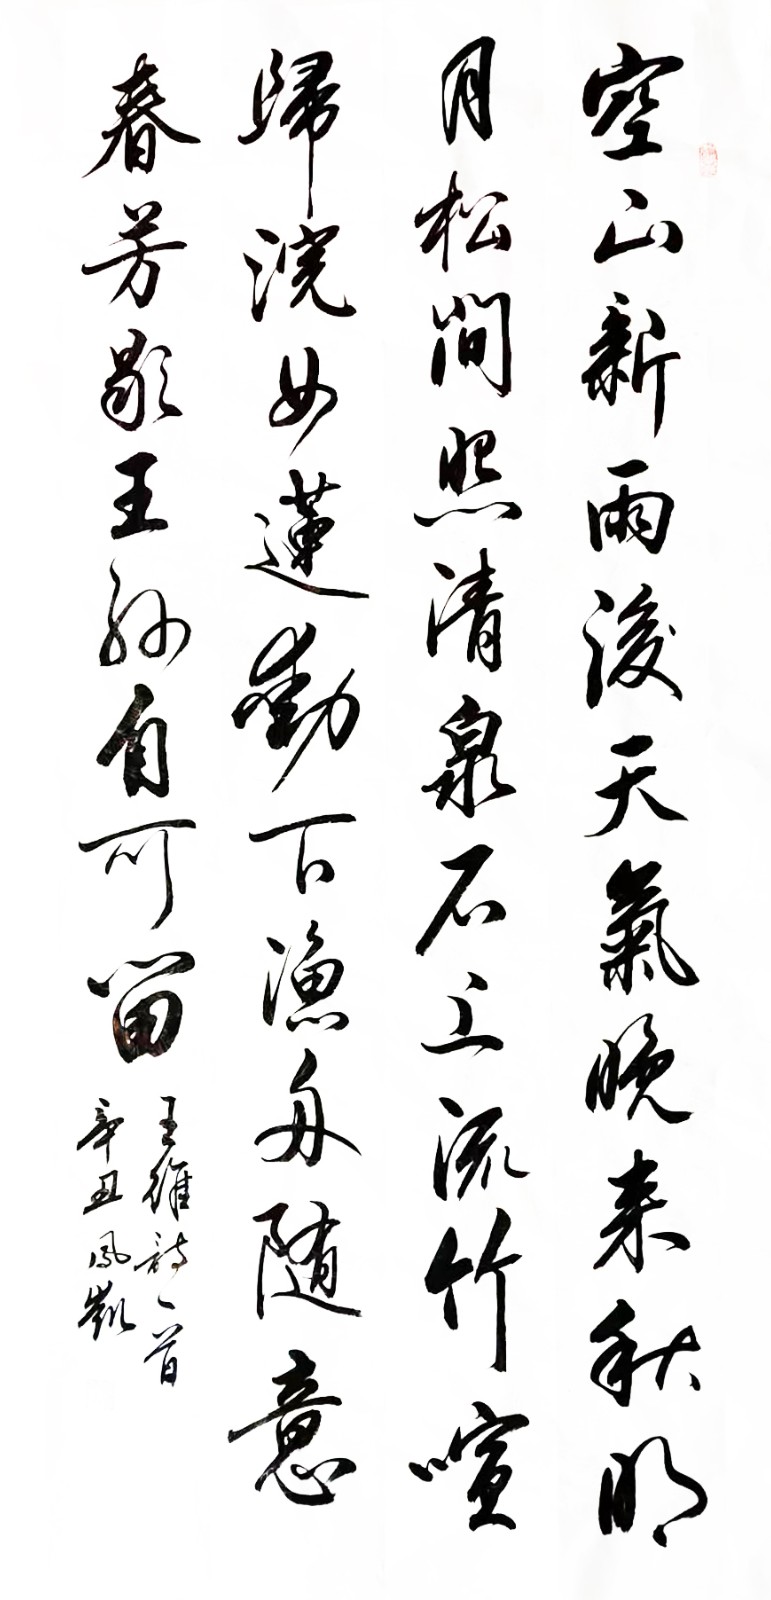 空山新雨後天氣晚來秋明
月松間照清泉石上流竹喧
歸浣女蓮動下漁舟隨意
春芳歇王孫自可留
王維詩一首
辛丑鳳凱